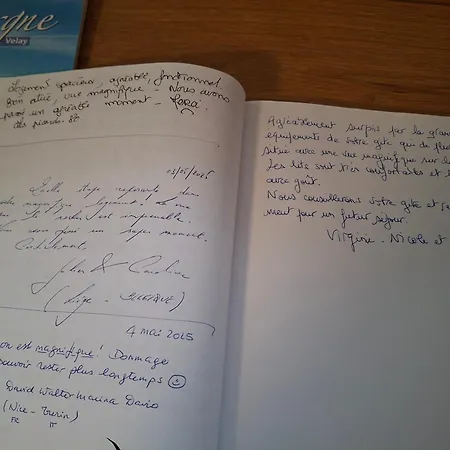 rgne
Velay
Logement spacieux, agréable, fonctionnel.
Bon situé, vue magnifique - Nous avons
passé un agréable moment -
des picards. 80
03/05/2025
Belle étape reposante dans
logement ! La vue
est imprenable.
un super moment.
Cordialement
Julien & Caroline
(Liège - BELGIQUE)
4 mai 2025
on est magnifique ! Dommage
pouvoir rester plus longtemps
David Walter Marina Dario
(Nice - Turin)
FR IT
Agréablement surpris par la gran
équipements de votre gîte qui de plu
situé avec une vue magnifique sur l
Les lits sont très confortables et l
avec goût.
Nous conseillerons votre gîte et
ment pour un futur séjour.
Virginie - Nicole et